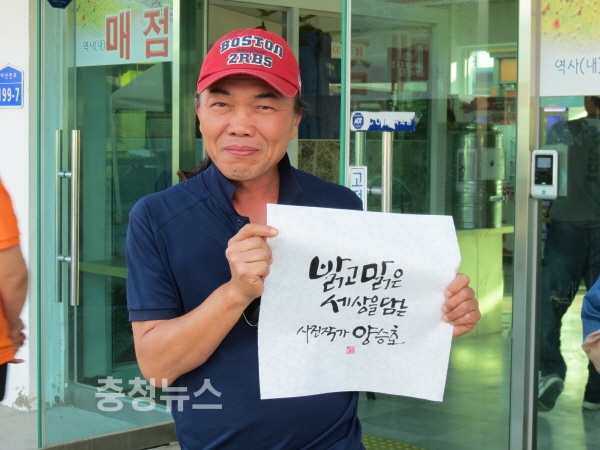 매점
역사(내)
역사(내)
199-7
BOSTON
2RBS
ADT
밝고 맑은
세상을 담는
사진작가 양승호
충청뉴스